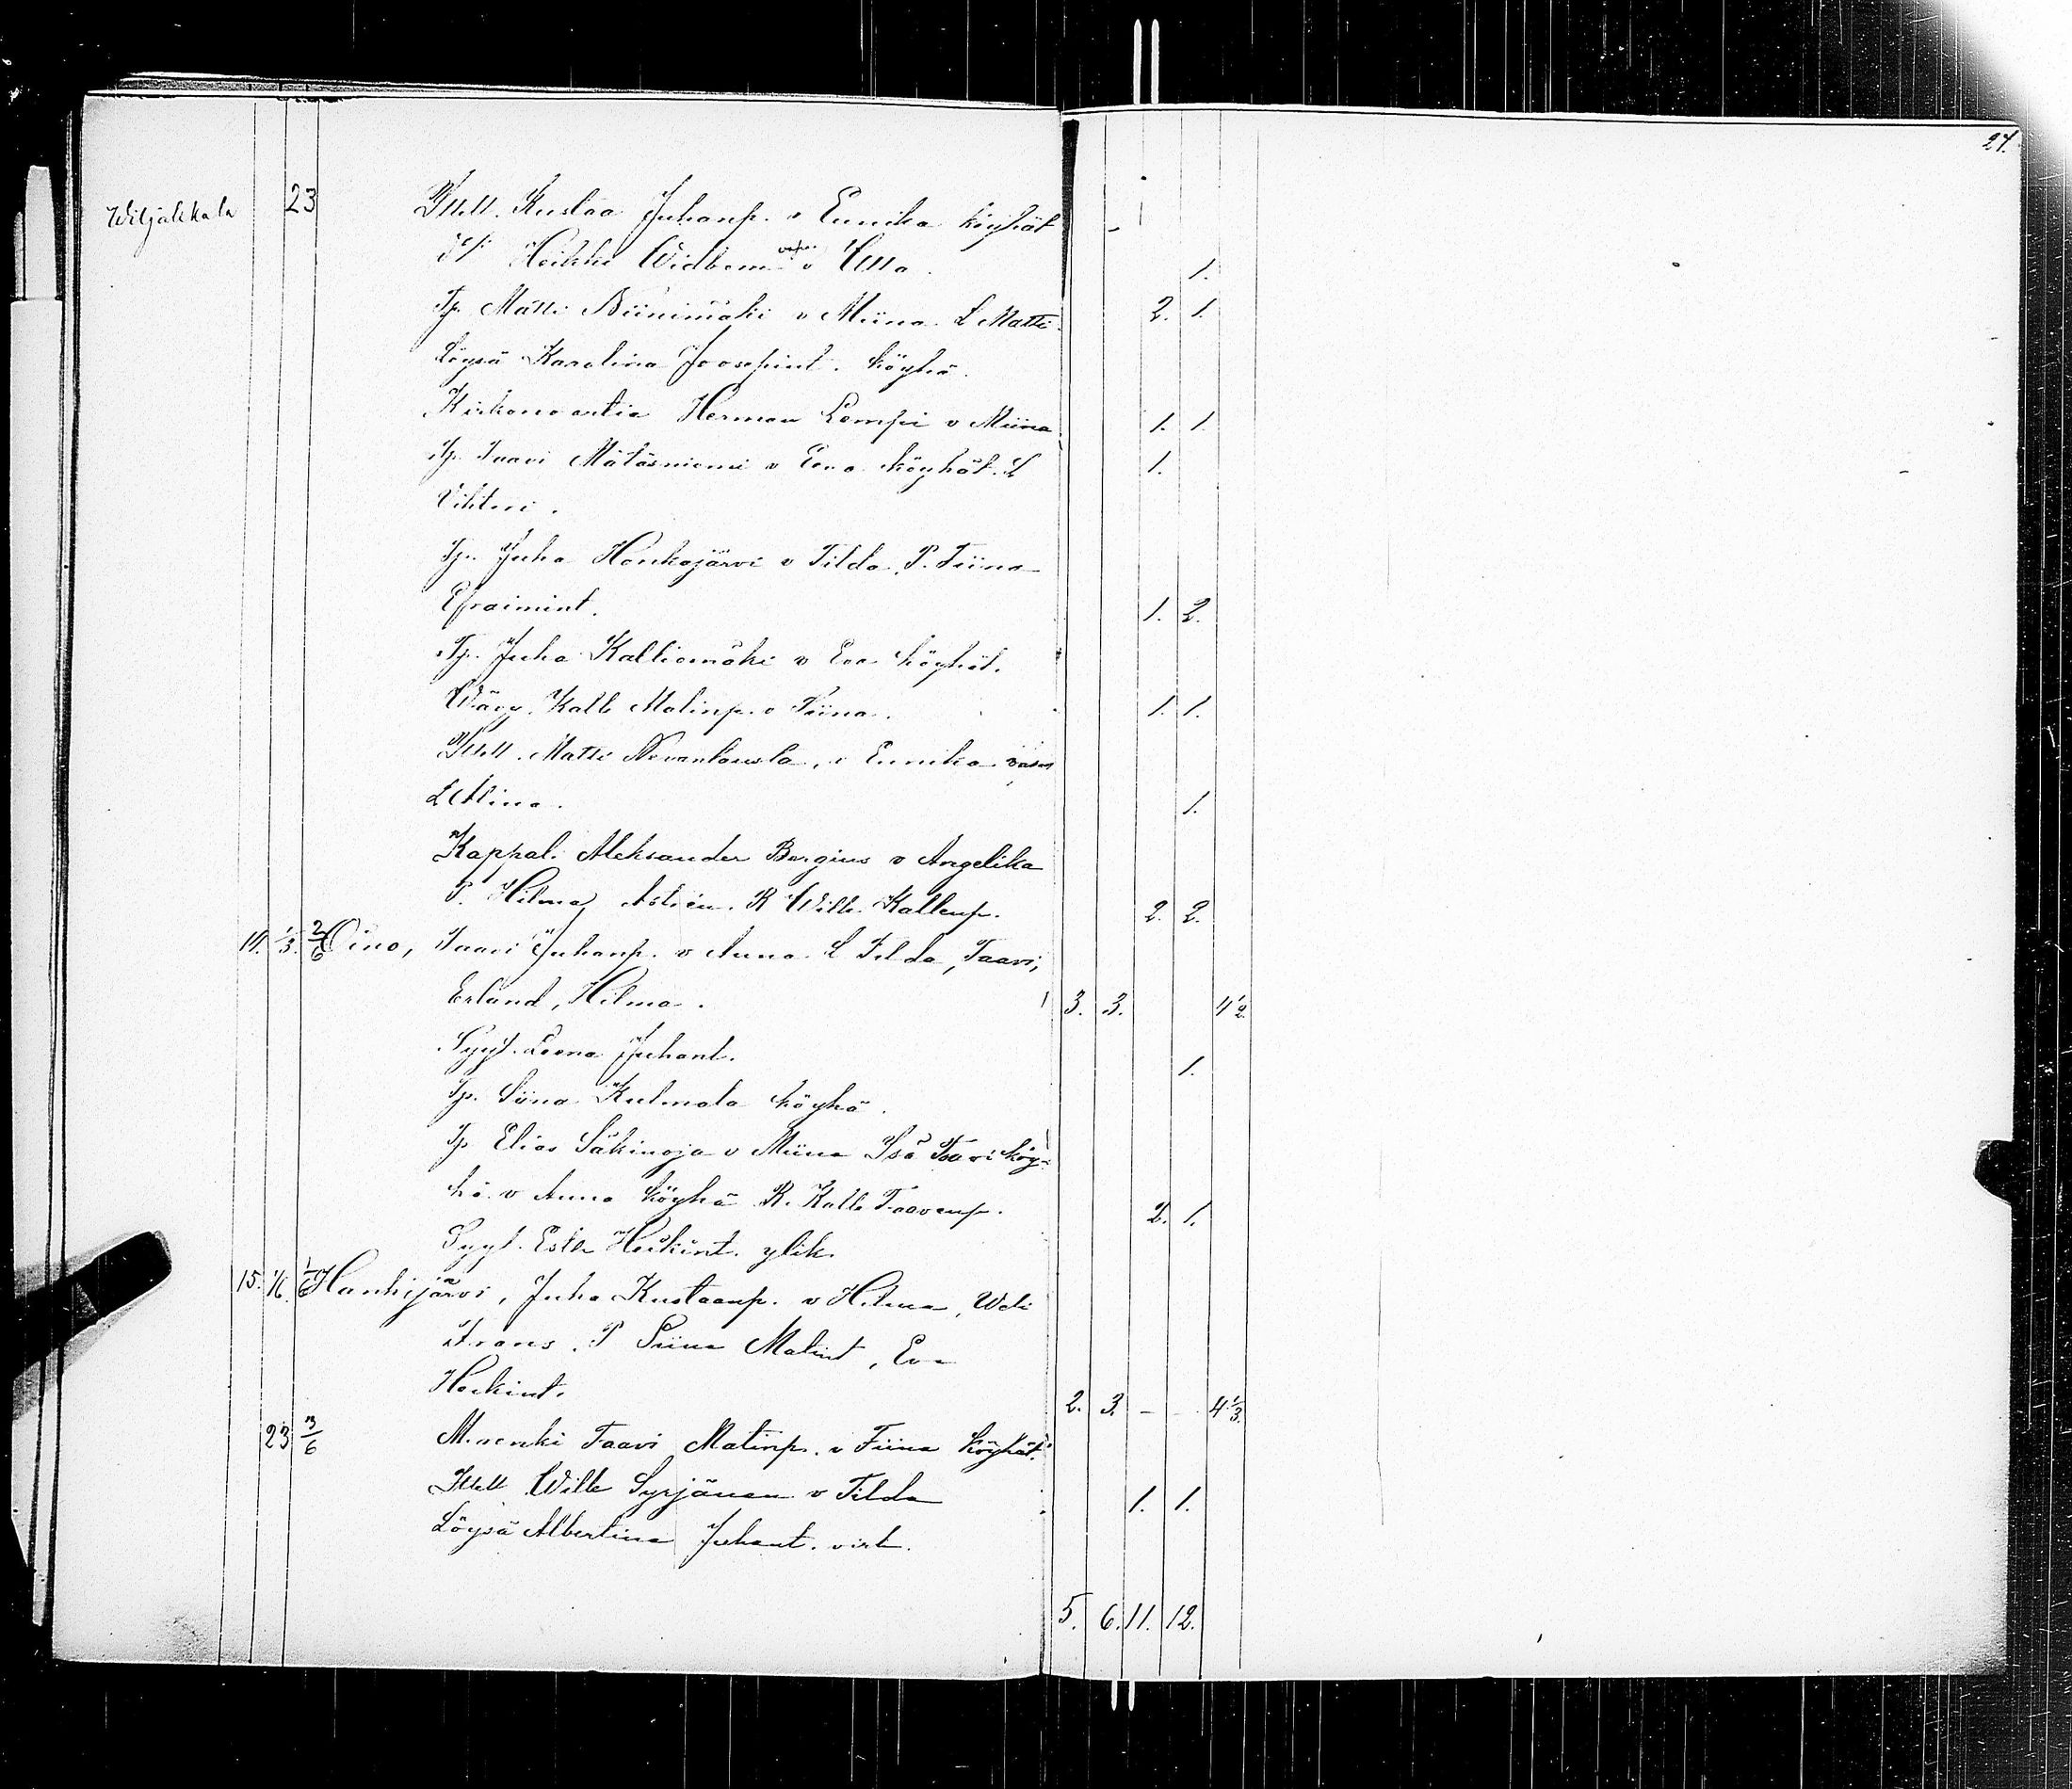 27.
Wiljakkala 23 Itell. Kustaa Juhanp. v Eunika köyhät -
Heikki Widbom v Ulla. 1.
Tp. Matti Niinimäki v Miina. L Matti 2. 1.
Löysä Karolina Joosepint. köyhä.
Kirkonvartia Herman Lempi v Miina 1. 1.
Tp. Taavi Mätäsniemi v Eeva köyhät. L 1.
Vihtori.
Tp. Juha Honkajärvi v Tilda. P. Tiina
Efraimint. 1. 2.
Tp. Juha Kalliomäki v Eva köyhät.
Wävy. Kalle Matinp. v Tiina. 1. 1.
Itell. Matti Nevanlausta, v Eunika.
L Miina. 1.
Kappal. Aleksander Bergius v Angelika
P. Hilma R Wille Kallenp. 2. 2.
14. 1/3. 2/6 Oino, Taavi Juhanp. v Anna. L Tilda, Taavi,
Erland, Hilma. 3. 3. 4 1/2.
Syyt. Leena Juhant. 1.
Tp. Siina Kulmala köyhä.
Tp Elias Säkinoja v Miina Isä Taavi köy-
hä. v Anna köyhä R. Kalle Taavenp. 2. 1.
Syyt. Ester Heikint. ylik.
15. 1/6. 1/6 Hanhijärvi, Juha Kustaanp. v Hilma, Weli
Frans. P Siina Matint, Eva
Heikint. 2. 3. - - 4 1/3.
23 3/6 Muenki Taavi Matinp. v Tiina köyhät.
Itell Wille Syrjänen v Tilda 1. 1.
Löysä Albertina Juhant. virk.
5. 6. 11. 12.